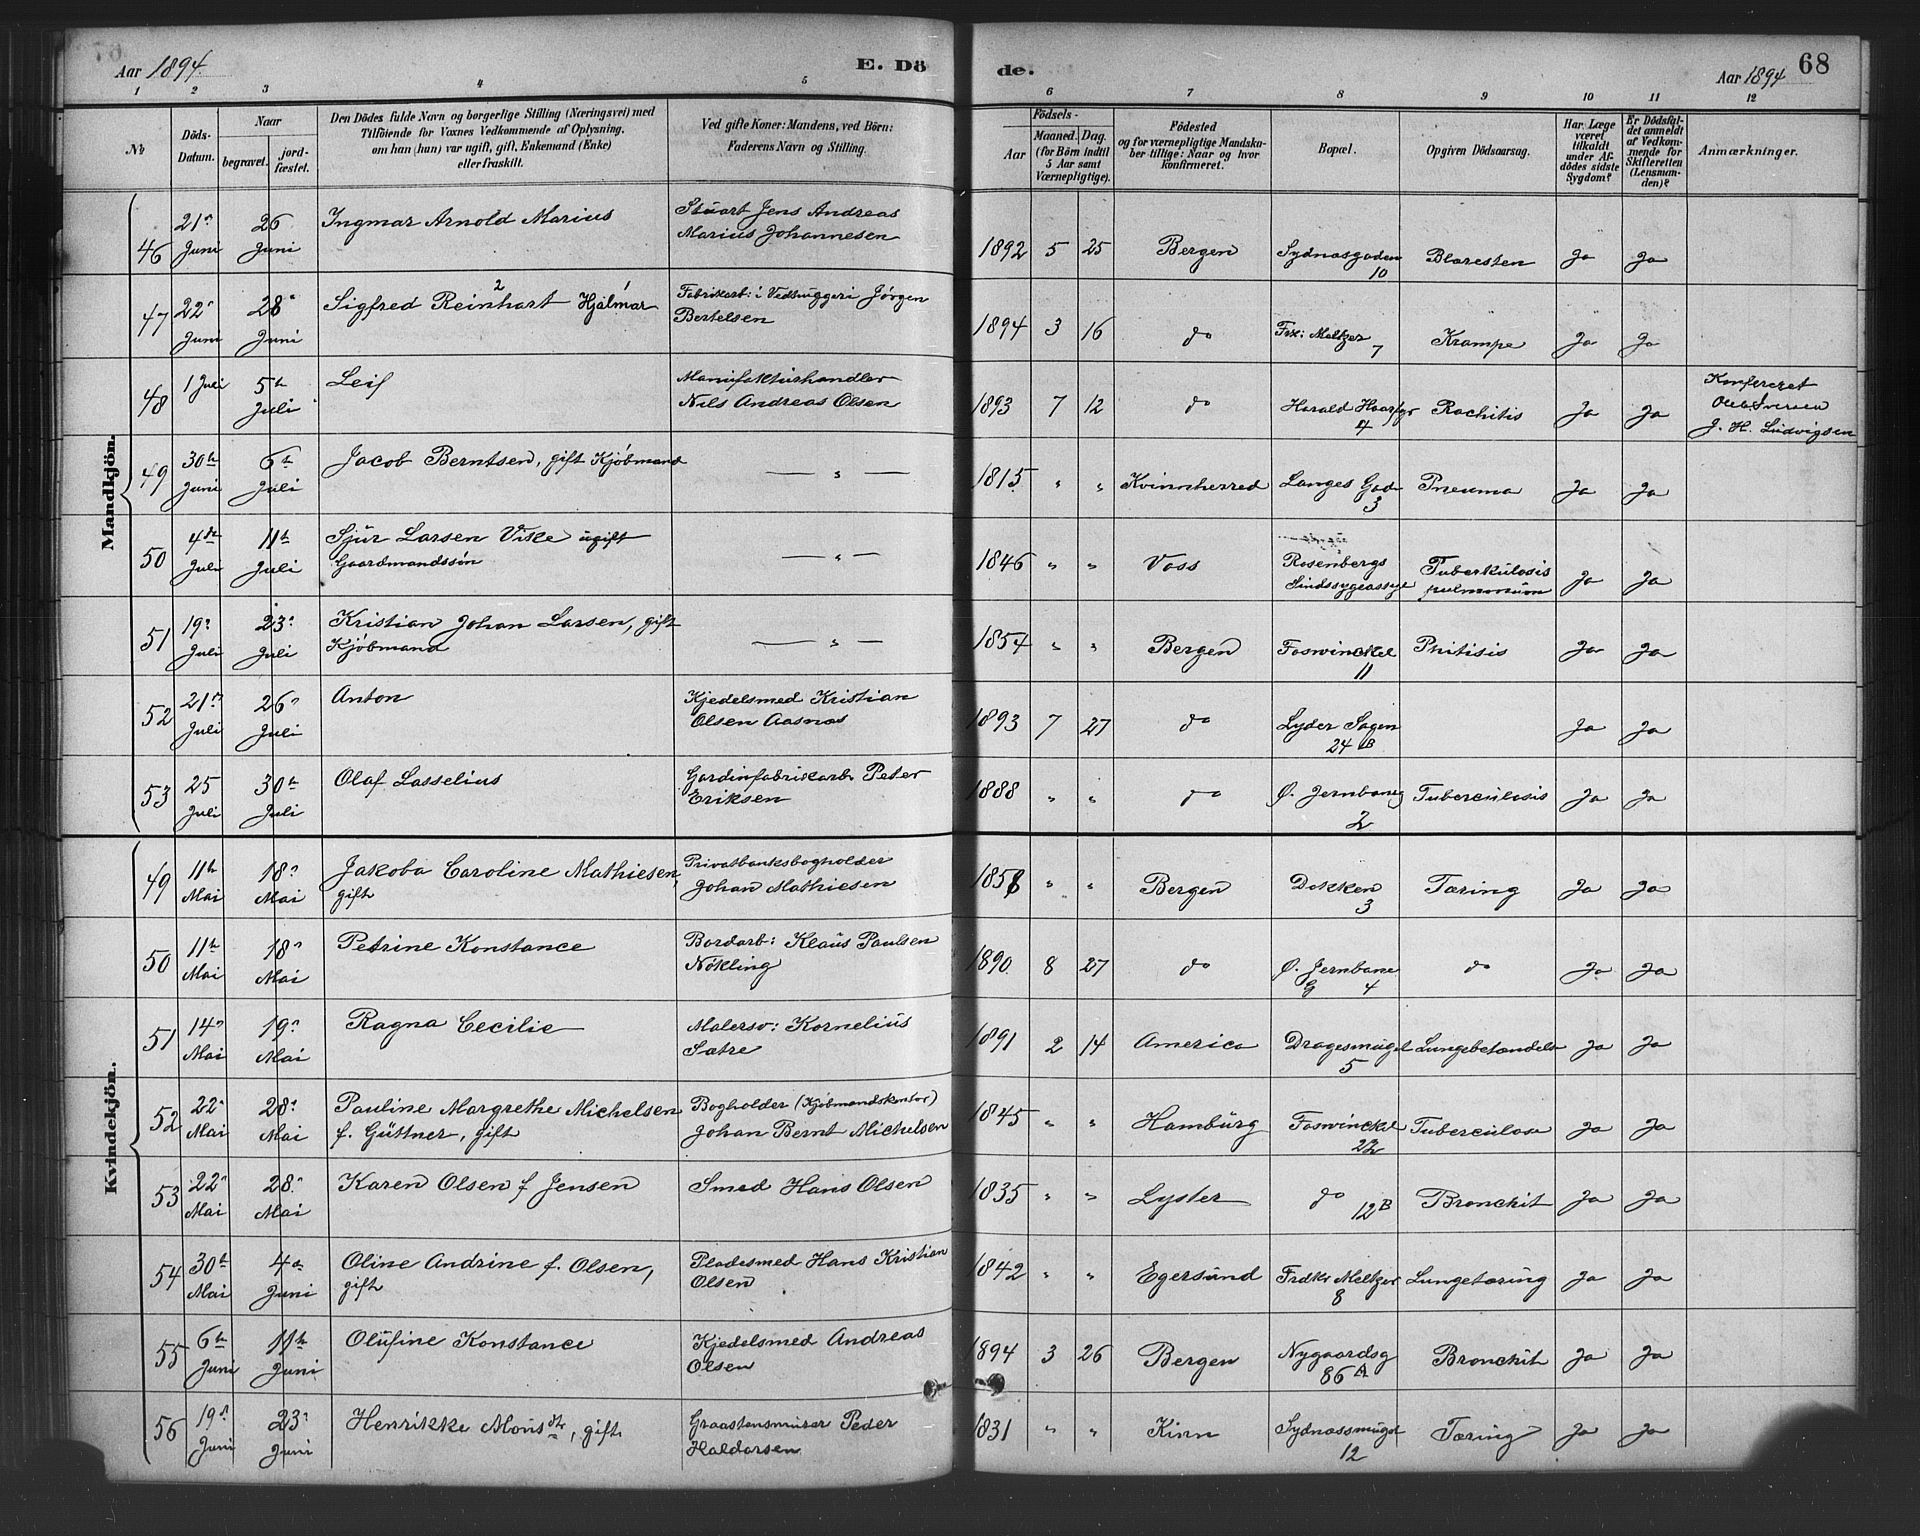 Aar 1894.
E. Dö
de.
Aar 1894
68
1 2 3 4 5 6 7 8 9 10 11 12
No
Döds-Datum.
Naar
begravet.
jord-fæstet.
Den Dödes fulde Navn og borgerlige Stilling (Næringsvei) med
Tilföiende for Voxnes Vedkommende af Oplysning,
om han (hun) var ugift, gift, Enkemand (Enke)
eller fraskilt.
Ved gifte Koner: Mandens, ved Börn:
Faderens Navn og Stilling.
Födsels-
Aar
Maaned. Dag.
(for Börn indtil
5 Aar samt
Værnepligtige).
Födested
og for værnepligtige Mandska-
ber tillige: Naar og hvor
konfirmeret.
Bopæl.
Opgiven Dödsaarsag.
Har Læge
været
tilkaldt
under Af-
dödes sidste
Sygdom?
Er Dödsfal-
det anmeldt
af Vedkom-
mende for
Skifteretten
(Lensman-
den)?
Anmærkninger.
Mandkjön.
46 21n Juni 26 Juni Ingmar Arnold Marius Stuart Jens Andreas Marius Johannesen 1892 5 25 Bergen Sydnæsgaden 10 Blæresten Ja Ja
47 22n Juni 28n Juni Sigfred Reinhart 2 Hjalmar 1 Fabrikarb: i Vedhuggeri Jørgen Bertelsen 1894 3 16 do Frk: Meltzer 7 Krampe Ja Ja
48 1 Juli 5te Juli Leif Manufakturhandler Nils Andreas Olsen 1893 7 12 do Harald Haarfgr 4 Rachitis Ja Ja Konfereret J. H. Ludvigsen
49 30te Juni 6te Juli Jacob Berntsen, gift Kjøbmand — " — 1815 " " Kvinnherred Langes Gad 3 Pneumo Ja Ja
50 4de Juli 11te Juli Sjur Larsen Vike ugift Gaardmandssøn — " — 1846 " " Voss Rosenbergs Sindssygeasyl Tuberkulosis pulmonum Ja Ja
51 19n Juli 23n Juli Kristian Johan Larsen, gift Kjøbmand — " — 1854 " " Bergen Foswinckel 11 Phitisis Ja Ja
52 21n Juli 26n Juli Anton Kjedelsmed Kristian Olsen Aasnæs 1893 7 27 do Lyder Sagen 24 B Ja Ja
53 25 Juli 30te Juli Olaf Lasselius Gardinfabrikarb. Peter Eriksen 1888 " " do Ø. Jernbaneg 2 Tuberculosis Ja Ja
Kvindekjön.
49 11te Mai 18n Mai Jakoba Caroline Mathiesen, gift Privatbanksbogholder Johan Mathiesen 1858 " " Bergen Dokken 3 Tæring Ja Ja
50 11te Mai 18n Mai Petrine Konstance Bordarb: Klaus Paulsen Nökling 1890. 8 27 do Ø. Jernbane G 4 do Ja Ja
51 14n Mai 19n Mai Ragna Cecilie Malersv: Kornelius Sætre 1891 2 14 America Dragesmuget 5 Lungebetændelse Ja Ja
52 22n Mai 28n Mai Pauline Margrethe Michelsen f. Güttner, gift Bogholder (Kjøbmandskontor) Johan Bernt Michelsen 1845 " " Hamburg Foswinckel 22 Tuberculose Ja Ja
53 22n Mai 28n Mai Karen Olsen f Jensen Smed Hans Olsen 1835 " " Lyster do 12B Bronchit Ja Ja
54 30te Mai 4de Juni Oline Andrine f. Olsen, gift Pladesmed Hans Kristian Olsen 1842 " " Egersund Frdkr Meltzer 8 Lungetæring Ja Ja
55 6te Juni 11te Juni Olufine Konstance Kjedelsmed Andreas Olsen 1894 3 26 Bergen Nygaardsg 86 A Bronchit Ja Ja
56 19n Juni 23n Juni Henrikke Monsdtr, gift Graastensmurer Peder Haldorsen 1831 " " Kinn Sydnæssmuget 12 Tæring Ja Ja